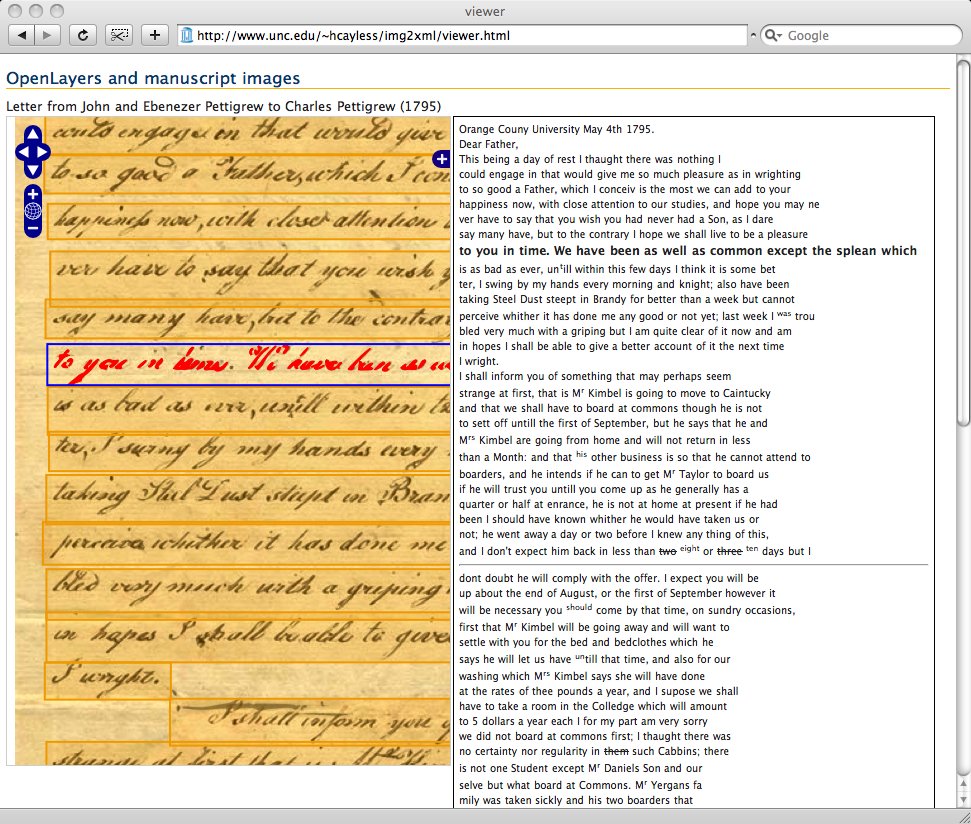 viewer
http://www.unc.edu/~hcayless/img2xml/viewer.html
Google
OpenLayers and manuscript images
Letter from John and Ebenezer Pettigrew to Charles Pettigrew (1795)
could engage in that would give
to so good a Father, which I con
happiness now, with closer attention
ver have to say that you wish y
say many have, but to the contra
to you in time. We have been as w
is as bad as ever, untill within t
ter, I swing by my hands every
taking Steel Dust steept in Bran
perceive whither it has done me
bled very much with a griping
in hopes I shall be able to give
I wright.
I shall inform you
strange at first that is Mr
Orange Couny University May 4th 1795.
Dear Father,
This being a day of rest I thaught there was nothing I
could engage in that would give me so much pleasure as in wrighting
to so good a Father, which I conceiv is the most we can add to your
happiness now, with close attention to our studies, and hope you may ne
ver have to say that you wish you had never had a Son, as I dare
say many have, but to the contrary I hope we shall live to be a pleasure
to you in time. We have been as well as common except the splean which
is as bad as ever, untill within this few days I think it is some bet
ter, I swing by my hands every morning and knight; also have been
taking Steel Dust steept in Brandy for better than a week but cannot
perceive whither it has done me any good or not yet; last week I was trou
bled very much with a griping but I am quite clear of it now and am
in hopes I shall be able to give a better account of it the next time
I wright.
I shall inform you of something that may perhaps seem
strange at first, that is Mr Kimbel is going to move to Caintucky
and that we shall have to board at commons though he is not
to sett off untill the first of September, but he says that he and
Mrs Kimbel are going from home and will not return in less
than a Month: and that his other business is so that he cannot attend to
boarders, and he intends if he can to get Mr Taylor to board us
if he will trust you untill you come up as he generally has a
quarter or half at enrance, he is not at home at present if he had
been I should have known whither he would have taken us or
not; he went away a day or two before I knew any thing of this,
and I don't expect him back in less than two eight or three ten days but I
dont doubt he will comply with the offer. I expect you will be
up about the end of August, or the first of September however it
will be necessary you should come by that time, on sundry occasions,
first that Mr Kimbel will be going away and will want to
settle with you for the bed and bedclothes which he
says he will let us have untill that time, and also for our
washing which Mrs Kimbel says she will have done
at the rates of thee pounds a year, and I supose we shall
have to take a room in the Colledge which will amount
to 5 dollars a year each I for my part am very sorry
we did not board at commons first; I thaught there was
no certainty nor regularity in them such Cabbins; there
is not one Student except Mr Daniels Son and our
selve but what board at Commons. Mr Yergans fa
mily was taken sickly and his two boarders that